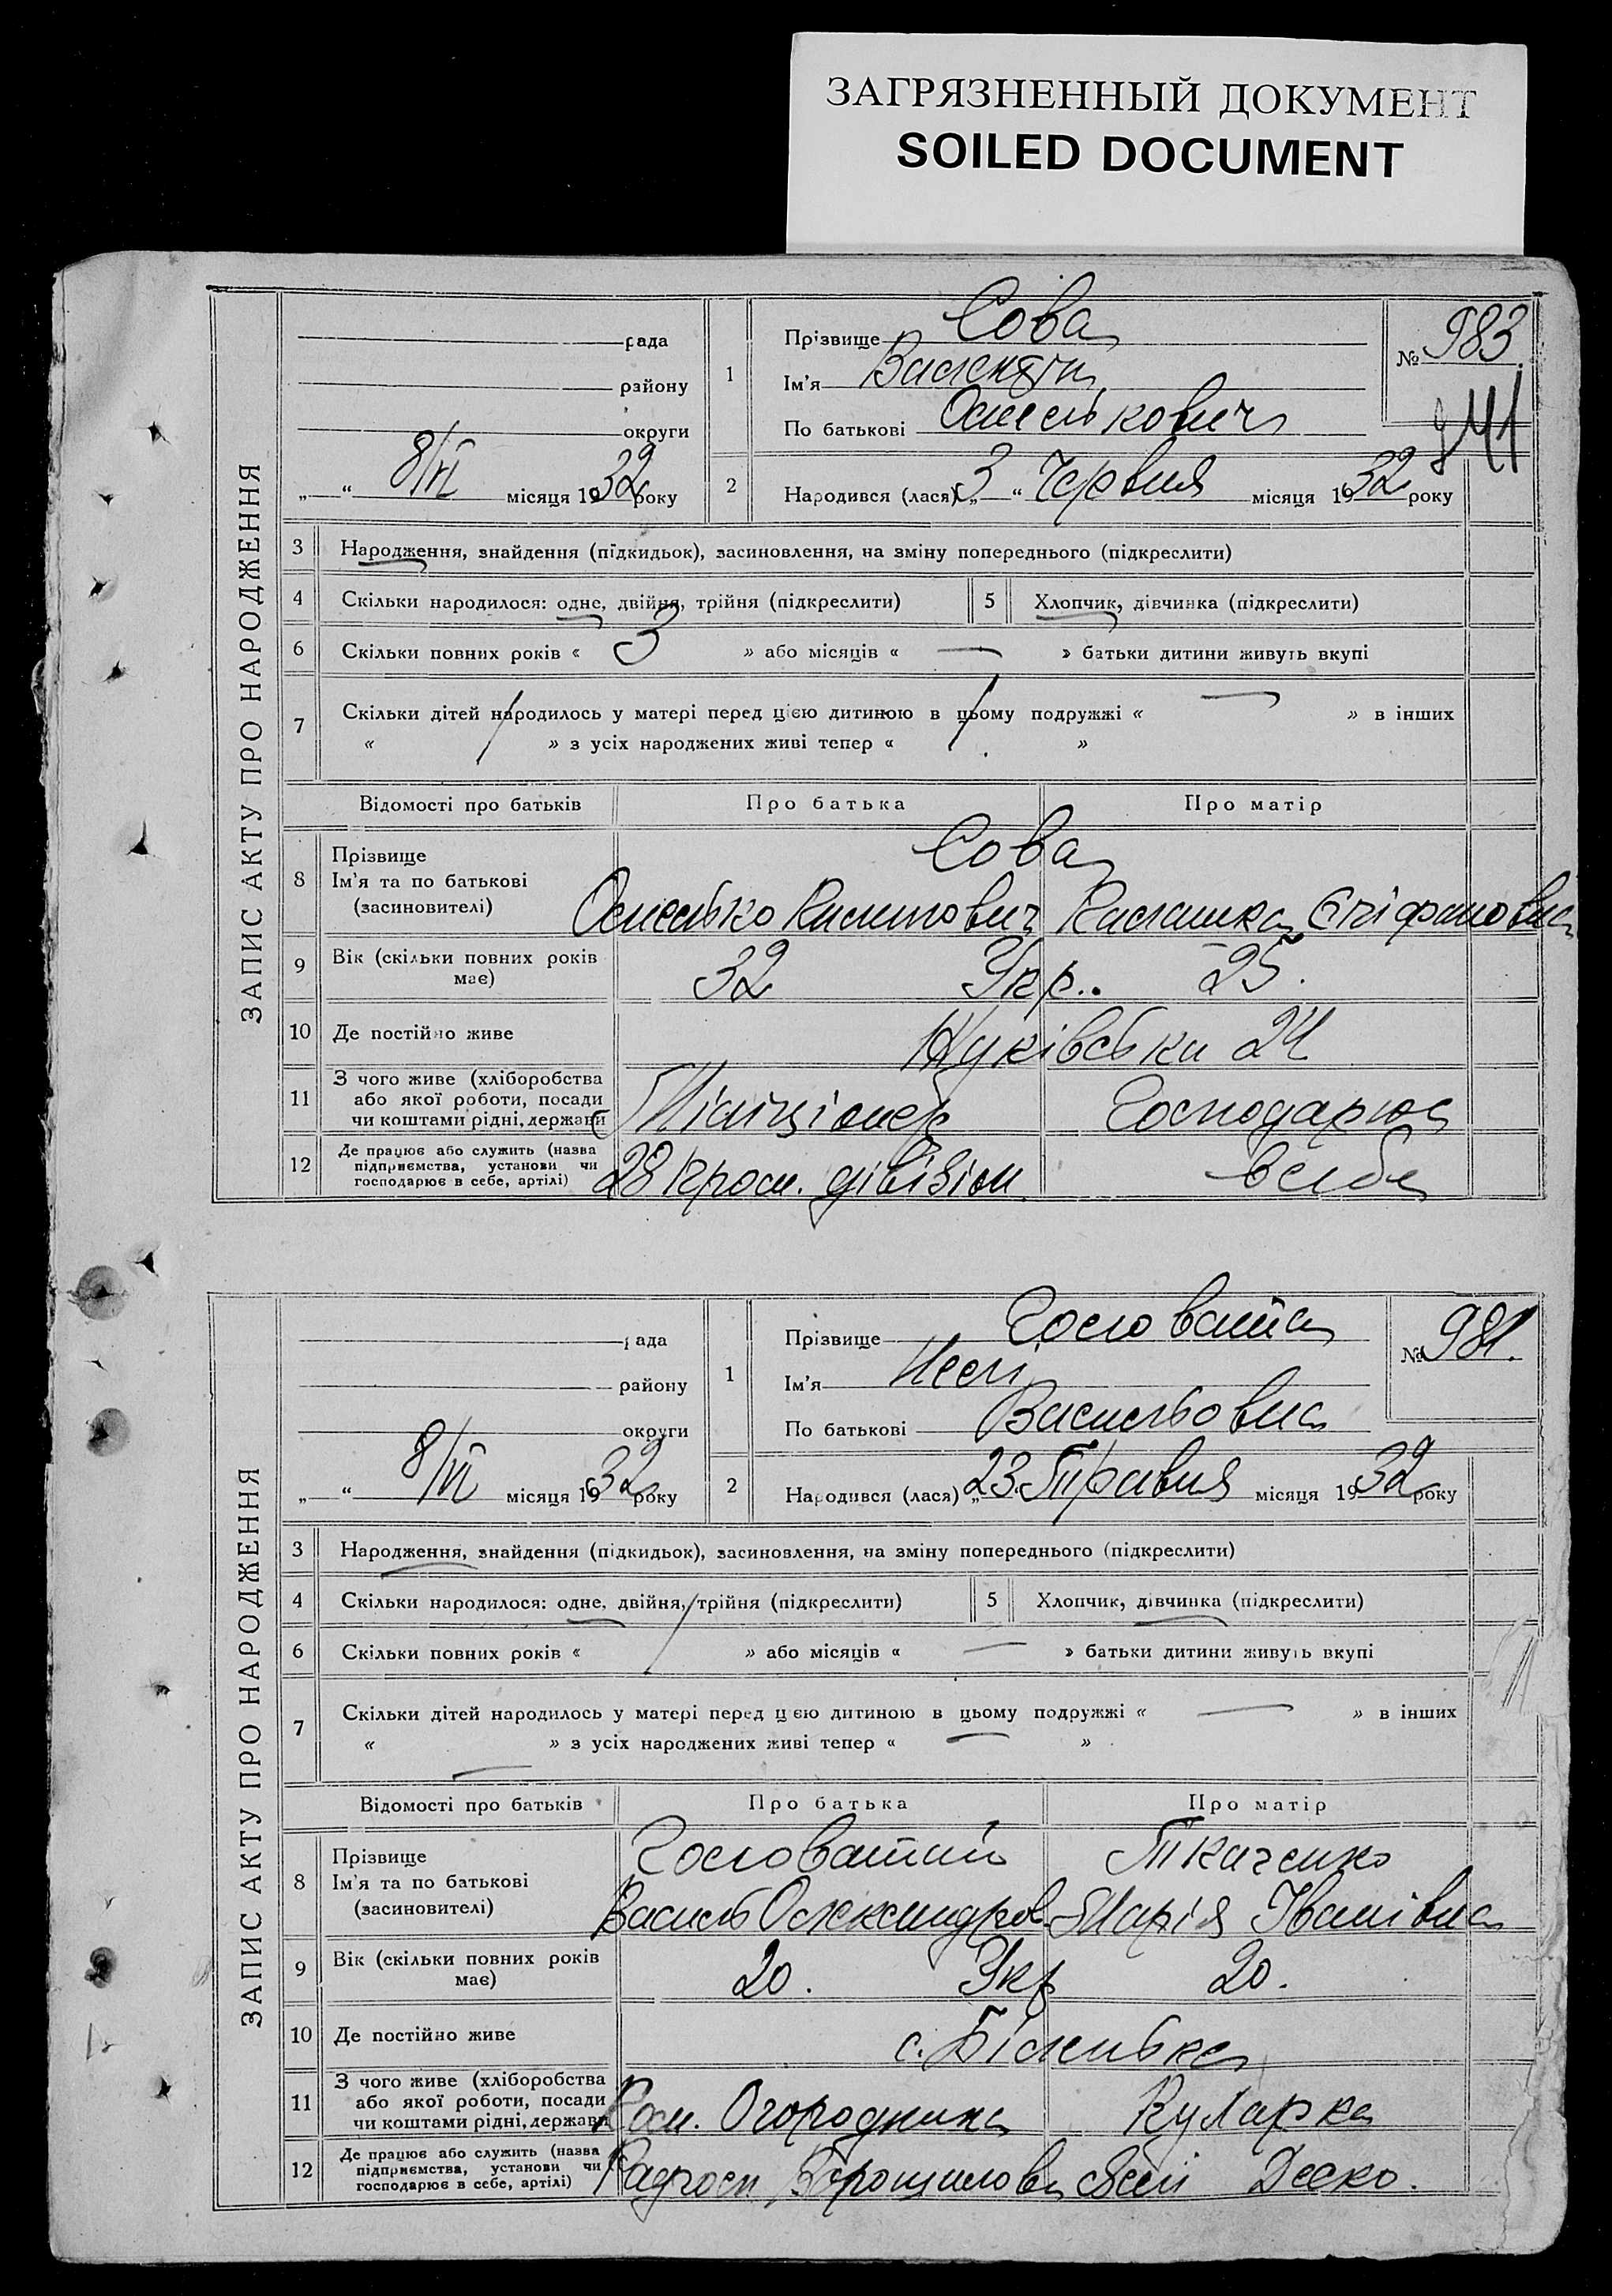 ЗАГРЯЗНЕННЫЙ ДОКУМЕНТ
SOILED DOCUMENT
ЗАПИС АКТУ ПРО НАРОДЖЕННЯ
рада
району
округи
„ “ 8/VI місяця 1932 року
1
Прізвище Сова
Ім'я Валентин
По батькові Омелькович
№ 983
841
2
Народився (лася) „3“ Червня місяця 1932 року
3 Народження, знайдення (підкидьок), засиновлення, на зміну попереднього (підкреслити)
4 Скільки народилося: одне, двійня, трійня (підкреслити)
5 Хлопчик, дівчинка (підкреслити)
6 Скільки повних років « 3 » або місяців « — » батьки дитини живуть вкупі
7 Скільки дітей народилось у матері перед цією дитиною в цьому подружжі « — » в інших
« / » з усіх народжених живі тепер « / »
Відомості про батьків Про батька Про матір
8 Прізвище Сова
Ім'я та по батькові
(засиновителі) Омелько
9 Вік (скільки повних років має) 32 Укр. 25.
10 Де постійно живе 24
11 З чого живе (хліборобства
або якої роботи, посади
чи коштами рідні, держави Міліціонер Господарює
12 Де працює або служить (назва
підприємства, установи чи
господарює в себе, артілі) 28 дівізіон. в себе
ЗАПИС АКТУ ПРО НАРОДЖЕННЯ
рада
району
округи
„ “ 8/VI місяця 1932 року
1
Прізвище
Ім'я
По батькові Васильовна
№ 981.
2
Народився (лася) „23 Травня місяця 1932 року
3 Народження, знайдення (підкидьок), засиновлення, на зміну попереднього (підкреслити)
4 Скільки народилося: одне, двійня, трійня (підкреслити)
5 Хлопчик, дівчинка (підкреслити)
6 Скільки повних років « / » або місяців « — » батьки дитини живуть вкупі
7 Скільки дітей народилось у матері перед цією дитиною в цьому подружжі « — » в інших
« — » з усіх народжених живі тепер « — »
Відомості про батьків Про батька Про матір
8 Прізвище Ткаченко
Ім'я та по батькові
(засиновителі) Василь Олександров. Марія Іванівна
9 Вік (скільки повних років має) 20. Укр 20.
10 Де постійно живе с. Біленька
11 З чого живе (хліборобства
або якої роботи, посади
чи коштами рідні, держави Огородника
12 Де працює або служить (назва
підприємства, установи чи
господарює в себе, артілі) Радгосп Ворошилова